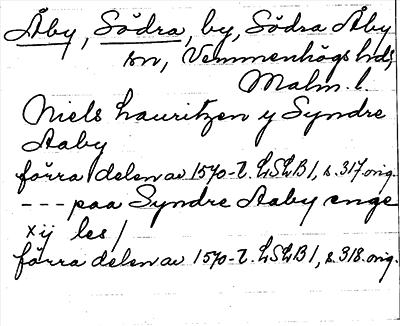 Åby, Södra, by, Södra Åby
sn, Vemmenhögs hd,
Malm. l.
Niels Lauritzen y Syndre
Aaby
förra delen av 1570-t. LSLB 1, s. 317 orig.
--- paa Syndre Aaby enge
xij les /
förra delen av 1570-t. LSLB 1, s. 318 orig.